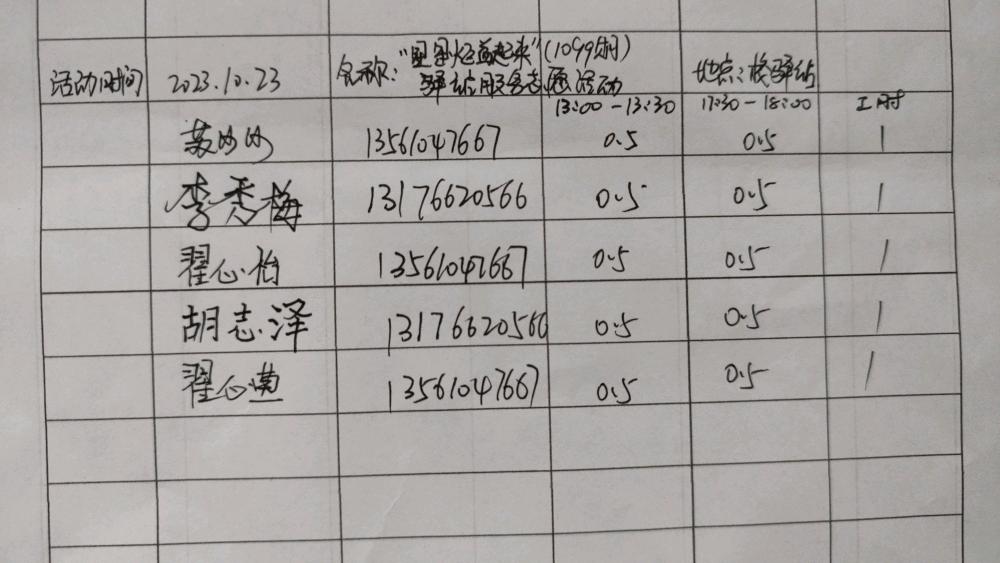 活动时间 2023.10.23 名称："星星火炬亮起来"(1099期) 地点：校驿站
驿站服务志愿活动
13:00-13:30 17:30-18:00 工时
苏沙沙 13561047667 0.5 0.5 1
李秀梅 13176620566 0.5 0.5 1
翟心怡 13561047667 0.5 0.5 1
胡志泽 13176620566 0.5 0.5 1
翟心 13561047667 0.5 0.5 1